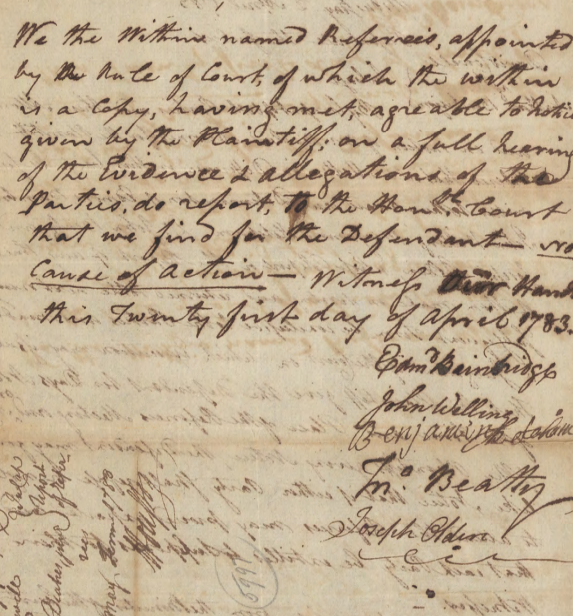 We the Within named Referrees, appointed
by the Rule of Court, of which the within
is a Copy, having met, agreable to Notice
given by the Plaintiff; on a full hearing
of the Evidence & allegations of the
Parties, do report, to the Honble. Court
that we find for the Defendant — No
Cause of Action — Witness Our Hands
this Twenty first day of April 1783.
Edmd Bainbridge
John Welling
Benjamin
Jno. Beatty
Joseph Olden
Report
of Refer
May 1783